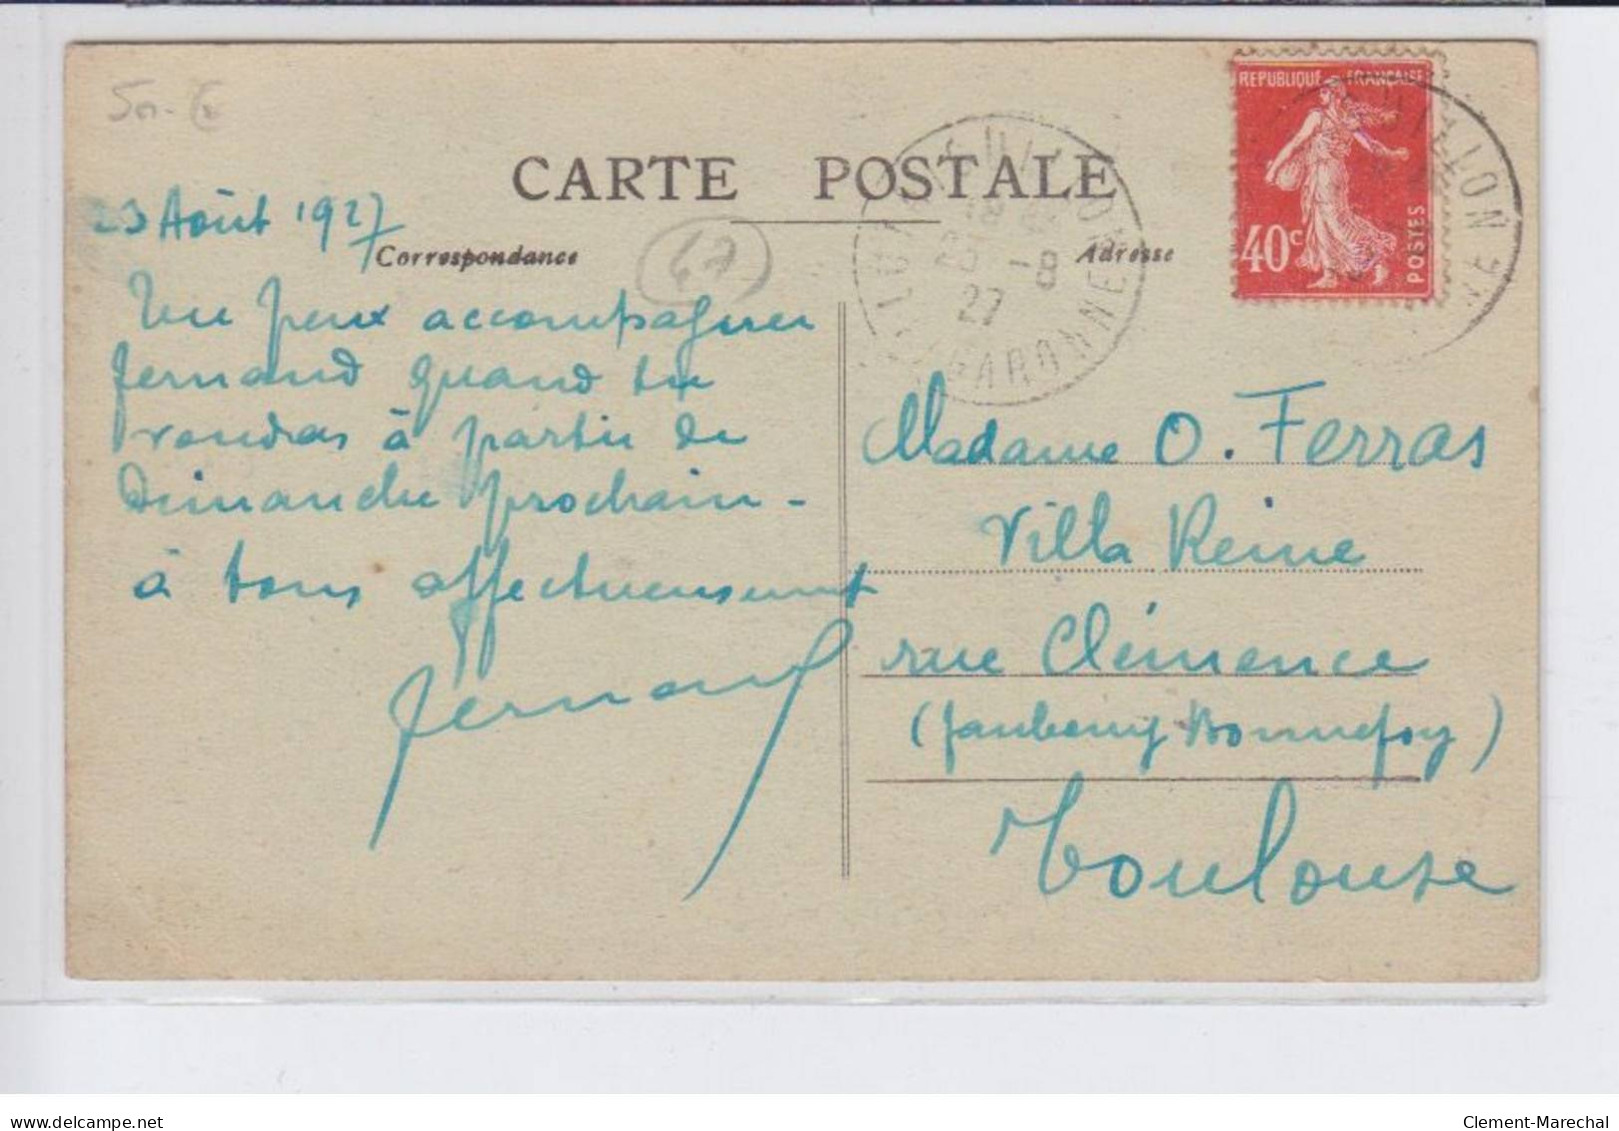 CARTE POSTALE
23 Août 1927
Correspondance
Adresse
REPUBLIQUE FRANÇAISE
40c
POSTES
-8
27
GARONNE
47
Tu peux accompagner
Fernand quand tu
voudras à partir de
Dimanche prochain -
à tous affectueusement
Fernand
Madame O. Ferras
Villa Reine
rue Clémence
(faubourg Bonnefoy)
Toulouse
Clement-Marechal